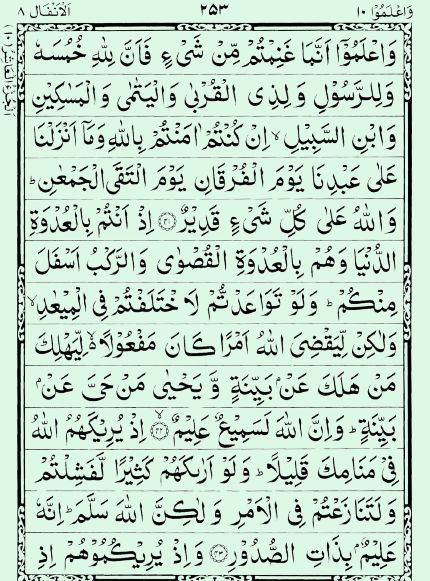 وَاعْلَمُوْٓا ١٠ ٢٥٣ اَلْاَنْفَال ٨
وَاعْلَمُوْٓا اَنَّمَا غَنِمْتُمْ مِّنْ شَیْءٍ فَاَنَّ لِلّٰهِ خُمُسَهٗ
وَلِلرَّسُوْلِ وَلِذِی الْقُرْبٰی وَالْیَتٰمٰی وَالْمَسٰكِیْنِ
وَابْنِ السَّبِیْلِ ۙ اِنْ كُنْتُمْ اٰمَنْتُمْ بِاللّٰهِ وَمَاۤ اَنْزَلْنَا
عَلٰی عَبْدِنَا یَوْمَ الْفُرْقَانِ یَوْمَ الْتَقَی الْجَمْعٰنِ ؕ
وَاللّٰهُ عَلٰی كُلِّ شَیْءٍ قَدِیْرٌ ﴿٤١﴾ اِذْ اَنْتُمْ بِالْعُدْوَةِ
الدُّنْیَا وَهُمْ بِالْعُدْوَةِ الْقُصْوٰی وَالرَّكْبُ اَسْفَلَ
مِنْكُمْ ؕ وَلَوْ تَوَاعَدْتُّمْ لَاخْتَلَفْتُمْ فِی الْمِیْعٰدِ ۙ
وَلٰكِنْ لِّیَقْضِیَ اللّٰهُ اَمْرًا كَانَ مَفْعُوْلًا ۙ۬ لِّیَهْلِكَ
مَنْ هَلَكَ عَنْۢ بَیِّنَةٍ وَّیَحْیٰی مَنْ حَیَّ عَنْۢ
بَیِّنَةٍ ؕ وَاِنَّ اللّٰهَ لَسَمِیْعٌ عَلِیْمٌ ﴿٤٢﴾ۙ اِذْ یُرِیْكَهُمُ اللّٰهُ
فِیْ مَنَامِكَ قَلِیْلًا ؕ وَلَوْ اَرٰىكَهُمْ كَثِیْرًا لَّفَشِلْتُمْ
وَلَتَنَازَعْتُمْ فِی الْاَمْرِ وَلٰكِنَّ اللّٰهَ سَلَّمَ ؕ اِنَّهٗ
عَلِیْمٌۢ بِذَاتِ الصُّدُوْرِ ﴿٤٣﴾ وَاِذْ یُرِیْكُمُوْهُمْ اِذِ